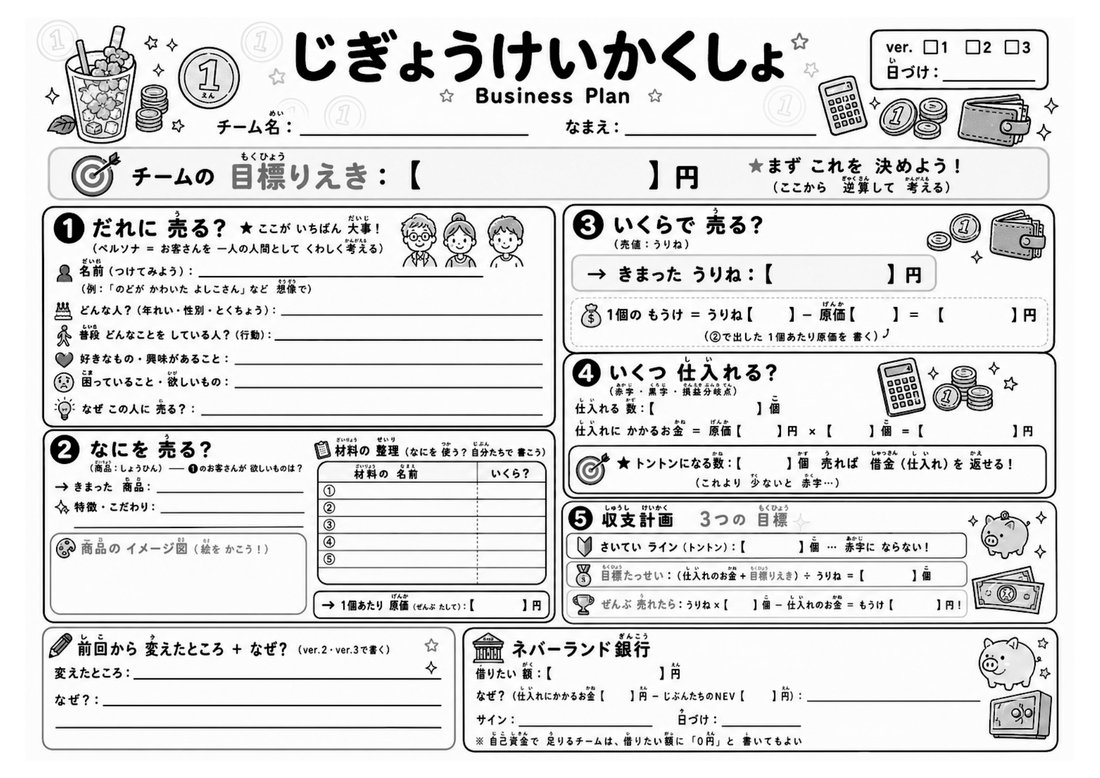 じぎょうけいかくしょ
Business Plan
ver. □1 □2 □3
日づけ：
チーム名：
なまえ：
チームの 目標りえき：【 】円
★まず これを 決めよう！
（ここから 逆算して 考える）
❶ だれに 売る？ ★ ここが いちばん 大事！
（ペルソナ ＝ お客さんを 一人の人間として くわしく考える）
名前（つけてみよう）：
（例：「のどが かわいた よしこさん」など 想像で）
どんな人？（年れい・性別・とくちょう）：
普段 どんなことを している人？（行動）：
好きなもの・興味があること：
困っていること・欲しいもの：
なぜ この人に 売る？：
❷ なにを 売る？
（商品：しょうひん）── ❶のお客さんが 欲しいものは？
→ きまった 商品：
特徴・こだわり：
商品の イメージ図（絵を かこう！）
材料の 整理（なにを 使う？ 自分たちで 書こう）
材料の 名前 いくら？
①
②
③
④
⑤
→ 1個あたり 原価（ぜんぶ たして）：【 】円
❸ いくらで 売る？
（売値：うりね）
→ きまった うりね：【 】円
1個の もうけ ＝ うりね【 】－ 原価【 】＝ 【 】円
（②で出した 1個あたり原価を 書く）
❹ いくつ 仕入れる？
（赤字・黒字・損益分岐点）
仕入れる 数：【 】個
仕入れに かかるお金 ＝ 原価【 】円 ×【 】個 ＝【 】円
★ トントンになる数：【 】個 売れば 借金（仕入れ）を 返せる！
（これより 少ないと 赤字…）
❺ 収支計画 3つの 目標
さいてい ライン（トントン）：【 】個 … 赤字に ならない！
目標たっせい：（仕入れのお金＋目標りえき）÷ うりね ＝【 】個
ぜんぶ 売れたら：うりね×【 】個 － 仕入れのお金 ＝ もうけ【 】円！
前回から 変えたところ ＋ なぜ？（ver.2・ver.3で書く）
変えたところ：
なぜ？：
ネバーランド銀行
借りたい 額：【 】円
なぜ？（仕入れにかかるお金【 】円 － じぶんたちのNEV【 】円）：
サイン：
日づけ：
※ 自己資金で 足りるチームは、借りたい額に「0円」と 書いてもよい